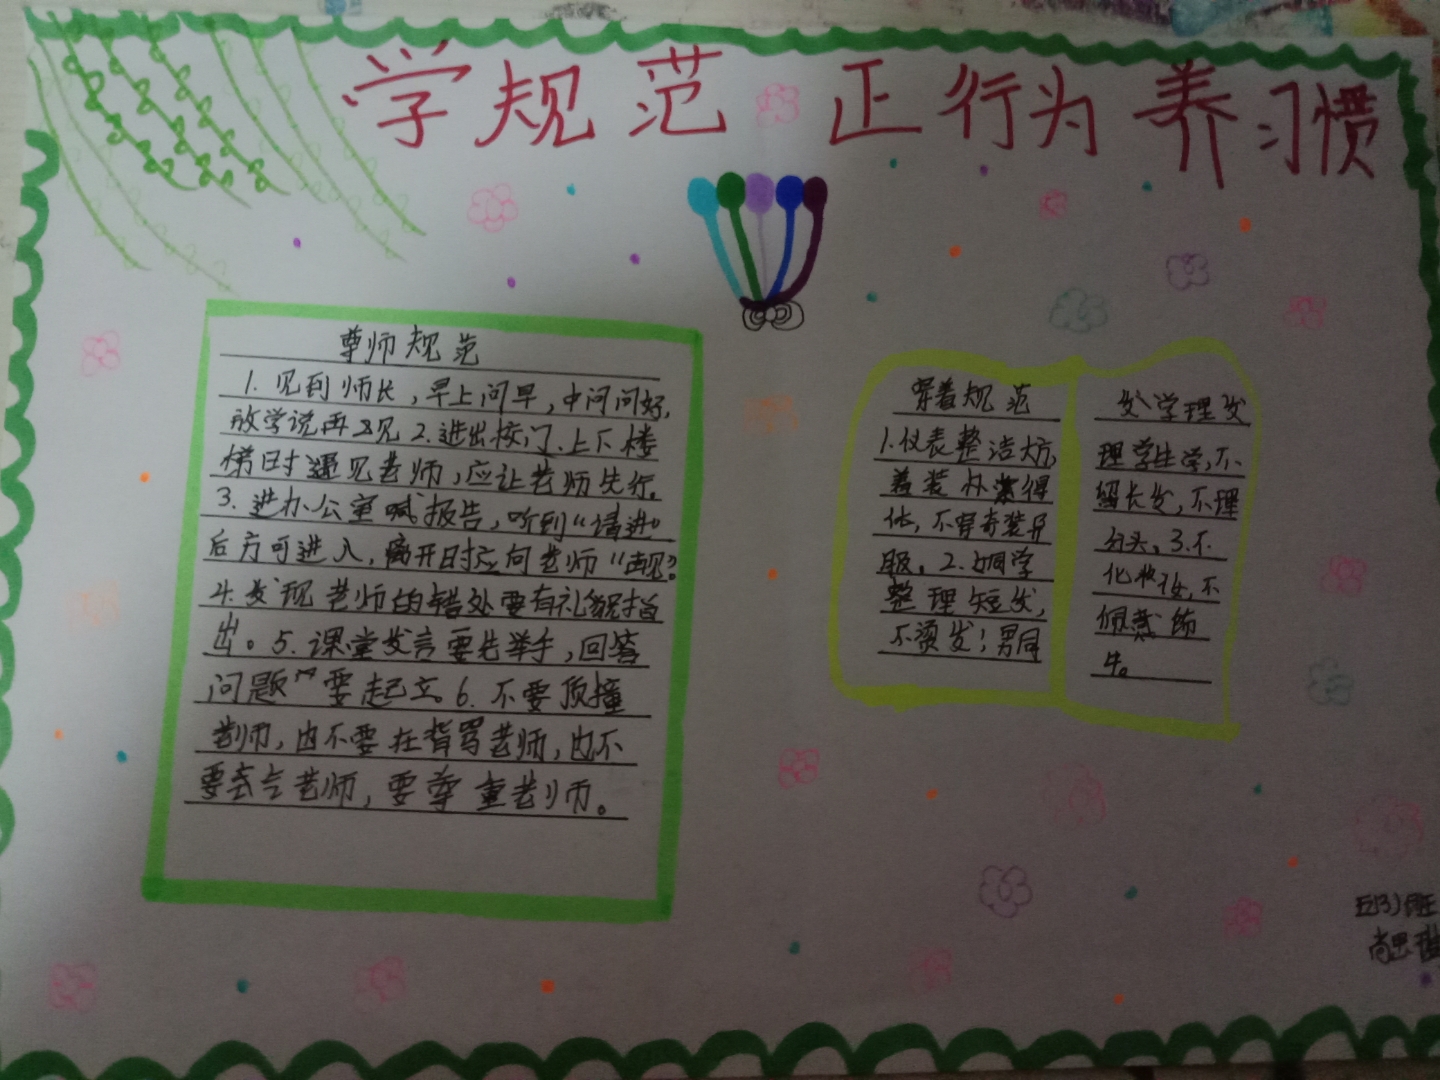 学规范 正行为 养习惯
尊师规范
1. 见到师长，早上问早，中问问好，
放学说再见 2. 进出校门、上下楼
梯时遇见老师，应让老师先行。
3. 进办公室喊报告，听到“请进”
后方可进入，离开时应向老师“再见”。
4. 发现老师的错处要有礼貌指
出。5. 课堂发言要先举手，回答
问题 要起立。6. 不要顶撞
老师，也不要在背骂老师，也不
要 老师，要尊重老师。
穿着规范
1. 仪表整洁大方，
着装朴素得
体，不穿奇装异
服。2. 女同学
整理短发，
不烫发；男同
学理发
理学生学，不
留长发，不理
分头。3. 不
化妆，不
佩戴饰
牛。
五(3)班
尚思